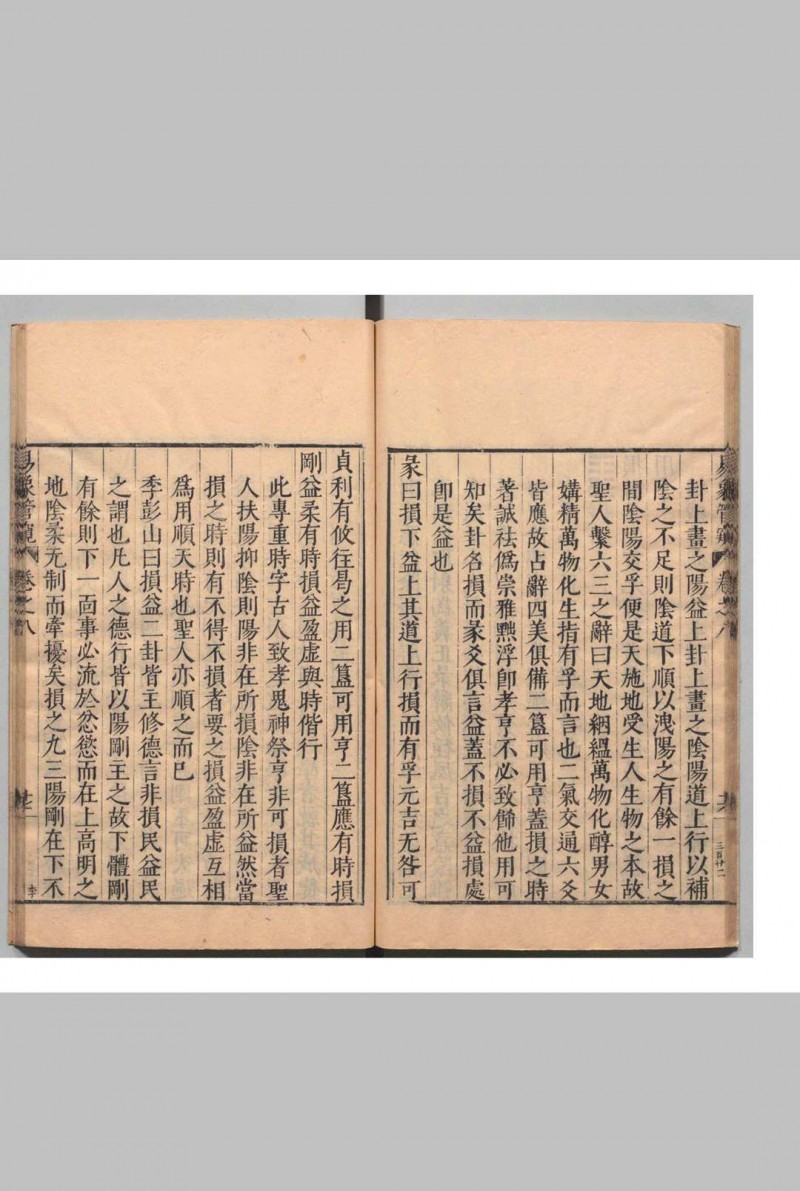 卦上畫之陽益上卦上畫之陰陽道上行以補
陰之不足則陰道下順以洩陽之有餘一損之
間陰陽交孚便是天施地受生人生物之本故
聖人繫六三之辭曰天地絪縕萬物化醇男女
媾精萬物化生指有孚而言也二氣交通六爻
皆應故占辭四美俱備二簋可用亨蓋損之時
著誠袪僞崇雅黜浮卽孝亨不必致飾他用可
知矣卦各損而彖爻俱言益蓋不損不益損處
卽是益也
彖曰損下益上其道上行損而有孚元吉无咎可
貞利有攸往曷之用二簋可用亨二簋應有時損
剛益柔有時損益盈虛與時偕行
此專重時字古人致孝鬼神祭亨非可損者聖
人扶陽抑陰則陽非在所損陰非在所益然當
損之時則有不得不損者要之損益盈虛互相
爲用順天時也聖人亦順之而巳
季彭山曰損益二卦皆主修德言非損民益民
之謂也凡人之德行皆以陽剛主之故下體剛
有餘則下一靣事必流於忿慾而在上高明之
地陰柔无制而牽擾矣損之九三陽剛在下不
易象管窺
卷之八
三百廿二
李